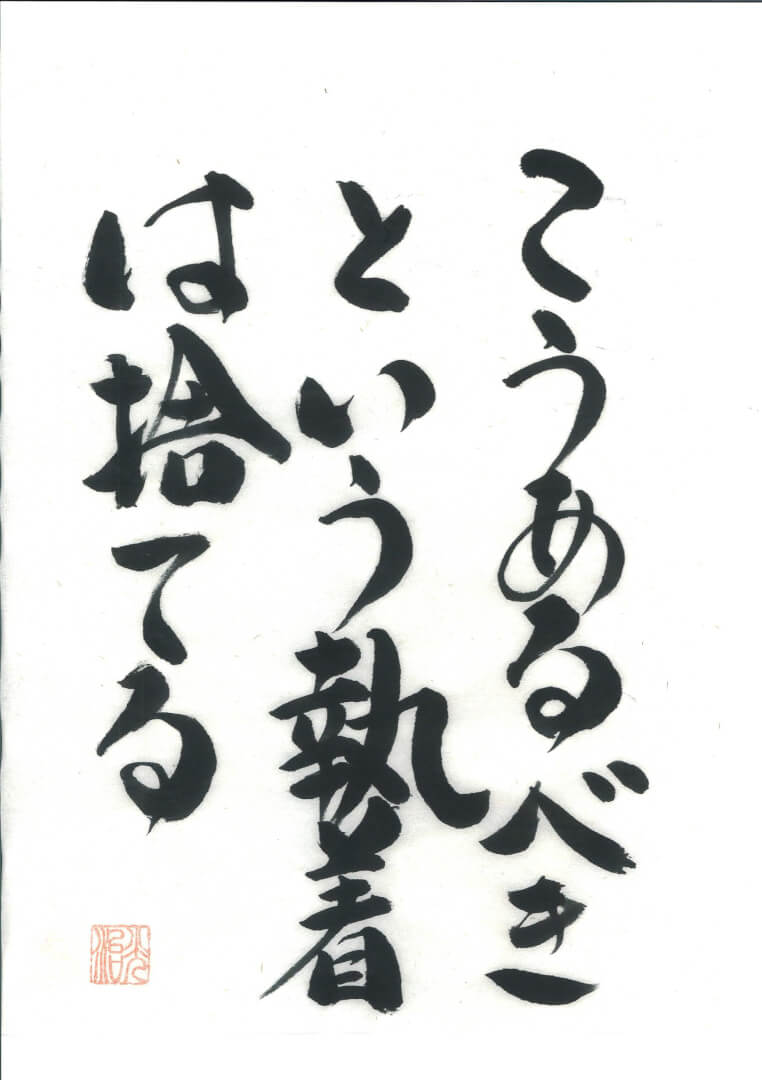 こうあるべき
という執着
は捨てる